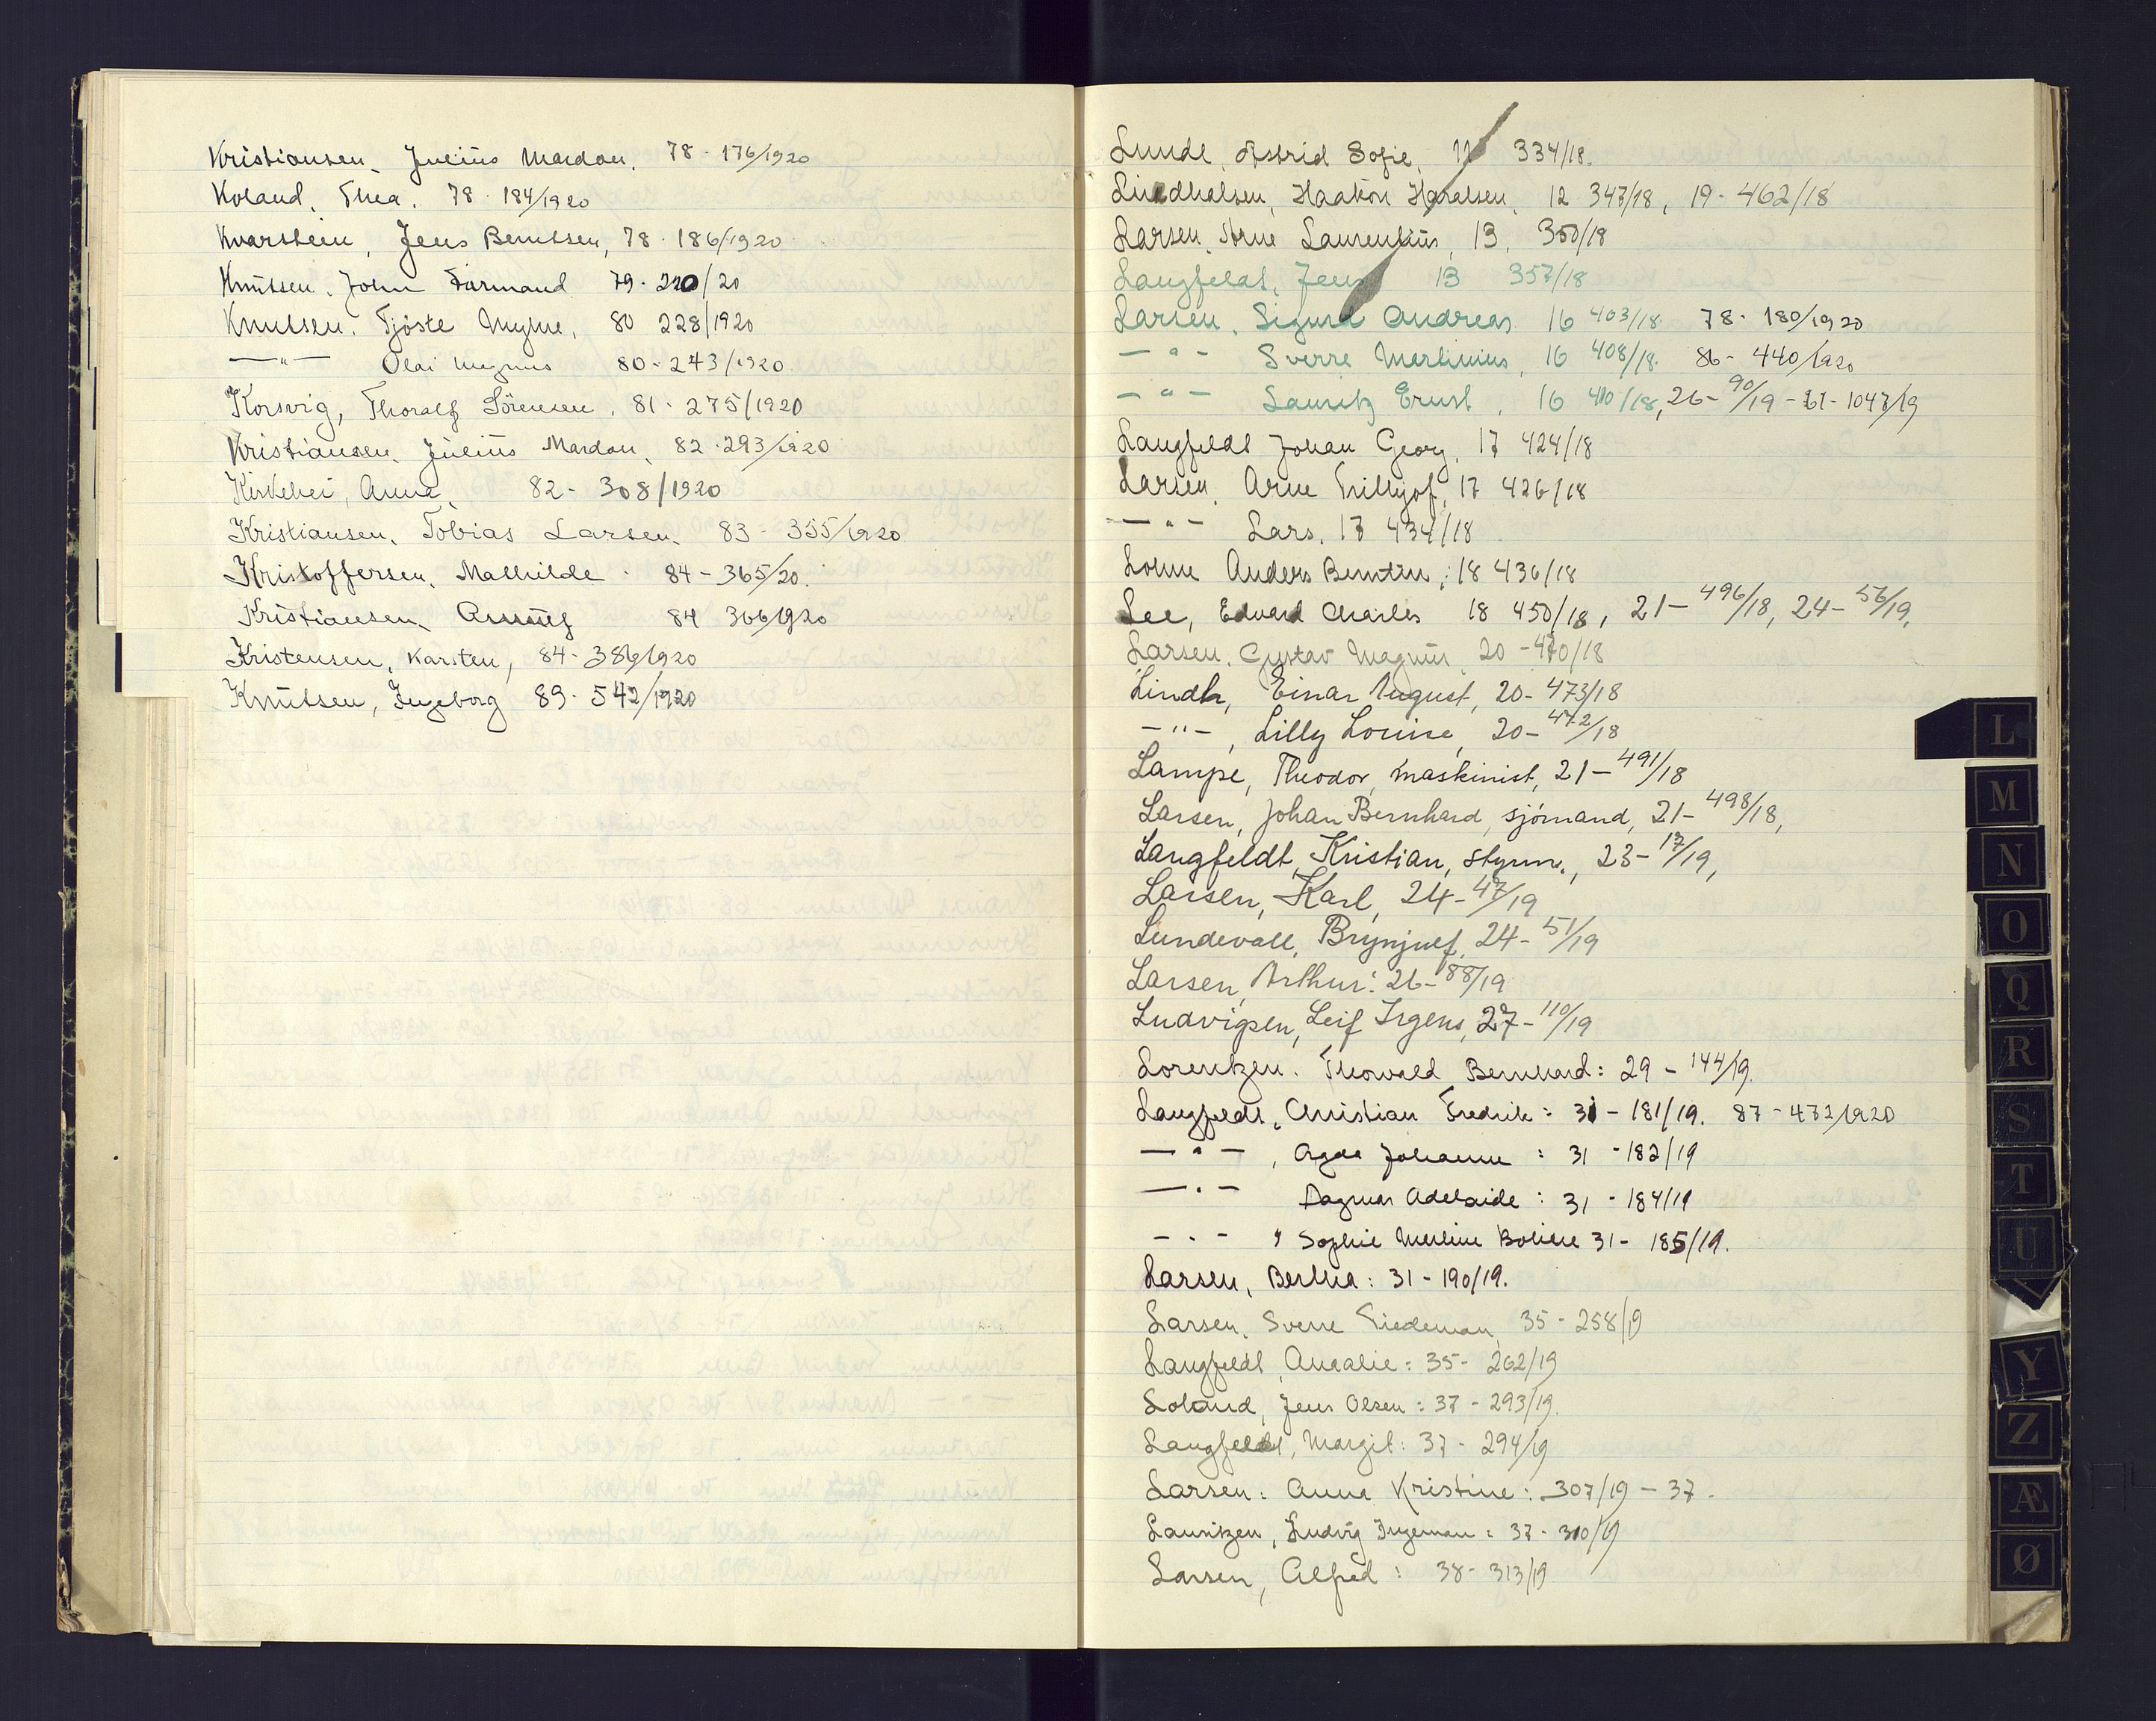 Kristiansen, Julius Mardon. 78 - 176/1920
Koland, Thea. 78 - 184/1920
Kvarstein, Jens Berntsen, 78 - 186/1920
Knutsen. John Farmand 79 - 220/20
Knutsen. Tjöste 80 228/1920
—"— Olai Magnus 80 - 243/1920
Korsvig, Thoralf Sörensen. 81 - 275/1920
Kristiansen, Julius Mardon, 82 - 293/1920
Kirkehei, Anna, 82 - 308/1920
Kristiansen, Tobias Larsen. 83 - 355/1920
Kristoffersen, Mathilde. 84 - 365/20.
Kristiansen, 84 366/1920
Kristensen, Karsten, 84 - 386/1920
Knutsen, Ingeborg 89 - 542/1920
Lunde, Astrid Sofie, 334/18.
Haakon Haralsen, 12 347/18, 19 - 462/18
Larsen, Arne Laurentius, 13, 350/18
Langfeldt, Jens 13 357/18
Larsen. Sigurd Andreas 16 403/18. 78 - 180/1920
—"— Sverre Martinius, 16 408/18. 86 - 440/1920
—"— Lauritz Ernst, 16 410/18, 26 - 90/19 - 61 - 1047/19
Langfeldt Johan Georg, 17 424/18
Larsen, Arne Frithjof, 17 426/18
—"— Lars, 17 434/18
Lohne Anders Berntin, 18 436/18
Lee, Edvard Charles 18 450/18, 21 - 496/18, 24 - 56/19,
Larsen, Gustav Magnus 20 - 470/18
Lindh, Einar August, 20 - 473/18
—"—, Lilly Louise, 20 - 472/18
Lampe, Theodor, maskinist, 21 - 491/18
Larsen, Johan Bernhard, sjömand, 21 - 498/18,
Langfeldt, Kristian, styrm., 23 - 17/19,
Larsen, Karl, 24 - 47/19
Lundevall, Brynjulf, 24 - 51/19
Larsen, Arthur: 26 - 88/19
Ludvigsen, Leif Irgens, 27 - 110/19
Lorentzen. Thorvald Bernhard: 29 - 144/19.
Langfeldt, Christian Fredrik: 31 - 181/19. 87 - 472/1920
—"—, Agda Johanne: 31 - 182/19
—"— Dagmar Adelaide: 31 - 184/19
—"— , Sophie 31 - 185/19.
Larsen, Bertha: 31 - 190/19.
Larsen, Sverre Tiedeman, 35 - 258/19
Langfeldt, Amalie: 35 - 262/19
Loland, Jens Olsen: 37 - 293/19.
Langfeldt, Margit: 37 - 294/19
Larsen: Anna Kristine: 307/19 - 37.
Lauritzen, Ludvig Ingeman: 37 - 310/19
Larsen, Alfred: 38 - 313/19
L
M
N
O
Q
R
S
T
U
Y
Z
Æ
Ø